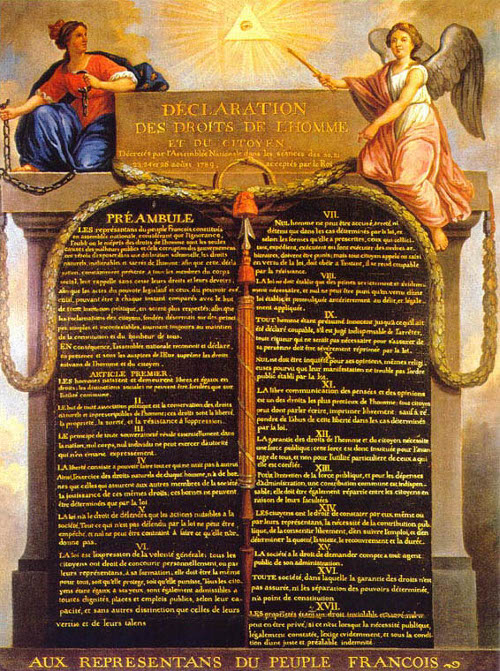 DÉCLARATION
DES DROITS DE L'HOMME
ET DU CITOYEN
Décretés par l'Assemblée Nationale dans les séances des 20, 21
23, 24 et 26 août 1789, acceptés par le Roi
PRÉAMBULE
LES représentans du peuple François constitués
en assemblée nationale, considérant que l'ignorance,
l'oubli ou le mépris des droits de l'homme sont les seules
causes des malheurs publics et de la corruption des gouvernemens
ont résolu d'exposer dans une déclaration solemnelle, les droits
naturels, inaliénables et sacrés de l'homme; afin que cette décla-
ration, constamment présente à tous les membres du corps
social, leur rappelle sans cesse leurs droits et leurs devoirs;
afin que les actes du pouvoir législatif et ceux du pouvoir exé-
cutif, pouvant être à chaque instant comparés avec le but
de toute institution politique, en soient plus respectés; afin que
les réclamations des citoyens, fondées désormais sur des princi-
pes simples et incontestables, tournent toujours au maintien
de la constitution et du bonheur de tous.
EN conséquence, l'assemblée nationale reconnoit et déclare,
en présence et sous les auspices de l'Etre suprême les droits
suivans de l'homme et du citoyen.
ARTICLE PREMIER.
LES hommes naissent et demeurent libres et égaux en
droits; les distinctions sociales ne peuvent être fondées que sur
l'utilité commune.
II.
LE but de toute association politique est la conservation des droits
naturels et imprescriptibles de l'homme; ces droits sont la liberté,
la propriété, la sureté, et la résistance à l'oppression.
III.
LE principe de toute souveraineté réside essentiellement dans
la nation, nul corps, nul individu ne peut exercer d'autorité
qui n'en émane expressément.
IV.
LA liberté consiste à pouvoir faire tout ce qui ne nuit pas à autrui
Ainsi, l'exercice des droits naturels de chaque homme, n'a de bor-
nes que celles qui assurent aux autres membres de la société
la jouissance de ces mêmes droits; ces bornes ne peuvent
être déterminées que par la loi
V.
LA loi n'a le droit de défendre que les actions nuisibles à la
société. Tout ce qui n'est pas défendu par la loi ne peut être
empêché, et nul ne peut être contraint à faire ce qu'elle n'or-
donne pas.
VI.
LA loi est l'expression de la volonté générale; tous les
citoyens ont droit de concourir personnellement, ou par
leurs représentans, à sa formation; elle doit être la même
pour tous, soit qu'elle protege, soit qu'elle punisse. Tous les cito-
yens étant égaux à ses yeux, sont également admissibles à
toutes dignités, places et emplois publics, selon leur capa-
cité, et sans autres distinction que celles de leurs
vertus et de leurs talens
VII.
NUL homme ne peut être accusé, arreté, ni
détenu que dans les cas déterminés par la loi, et
selon les formes qu'elle a prescrites, ceux qui sollici-
tent, expédient, exécutent ou font exécuter des ordres ar-
bitraires, doivent être punis; mais tout citoyen appelé ou saisi
en vertu de la loi, doit obéir à l'instant, il se rend coupable
par la résistance.
VIII.
LA loi ne doit établir que des peines strictement et évidem-
ment nécessaire, et nul ne peut être puni qu'en vertu d'une
loi établie et promulguée antérieurement au délit, et légale-
ment appliquée.
IX.
TOUT homme étant présumé innocent jusqu'à ce qu'il ait
été déclaré coupable, s'il est jugé indispensable de l'arrêter,
toute rigueur qui ne serait pas nécessaire pour s'assurer de
sa personne doit être sévèrement réprimée par la loi.
X.
NUL ne doit être inquiété pour ses opinions, mêmes religi-
euses pourvu que leur manifestation ne trouble pas l'ordre
public établi par la loi.
XI.
LA libre communication des pensées et des opinions
est un des droits les plus precieux de l'homme; tout citoyen
peut donc parler écrire, imprimer librement; sauf à ré-
pondre de l'abus de cette liberté dans les cas déterminés
par la loi.
XII.
LA garantie des droits de l'homme et du citoyen nécessite
une force publique; cette force est donc instituée pour l'avan-
tage de tous, et non pour l'utilité particuliere de ceux à qui
elle est confiée.
XIII.
Pour l'entretien de la force publique, et pour les dépenses
d'administration, une contribution commune est indispen-
sable; elle doit être également répartie entre les citoyens en
raison de leurs facultés.
XIV.
LES citoyens ont le droit de constater par eux même ou
par leurs représentans, la nécessité de la contribution pub-
lique, de la consentir librement, d'en suivre l'emploi, et d'en
déterminer la quotité, l'assiette, le recouvrement et la durée.
XV.
LA société a le droit de demander compte à tout agent
public de son administration.
XVI.
TOUTE société, dans laquelle la garantie des droits n'est
pas assurée, ni les séparation des pouvoirs déterminée,
n'a point de constitution
XVII.
LES propriétés étant un droit inviolable et sacré, nul ne
peut en être privé, si ce n'est lorsque la nécessité publique,
légalement constatée, l'exige evidemment, et sous la condi-
tion d'une juste et préalable indemnité.
AUX REPRESENTANS DU PEUPLE FRANCOIS